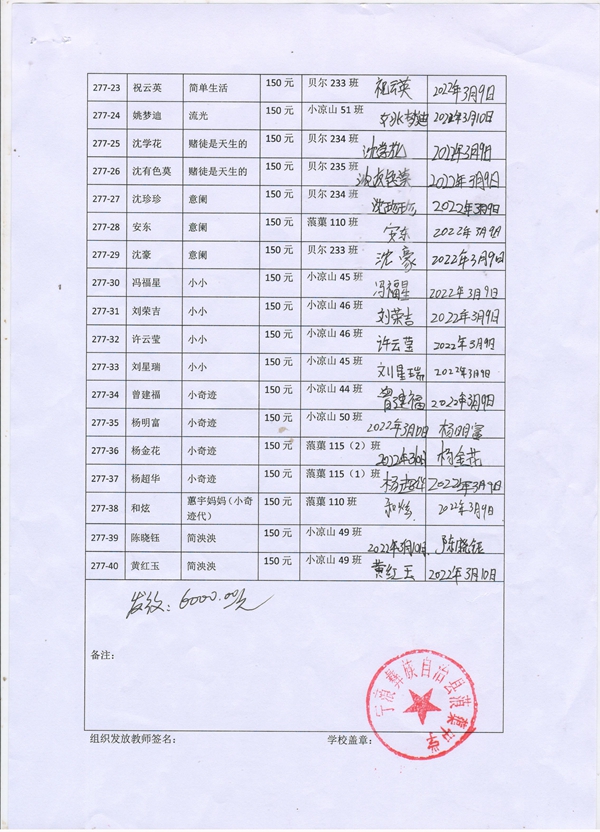 277-23 祝云英 简单生活 150 元 贝尔 233 班 祝云英 2022年3月9日
277-24 姚梦迪 流光 150 元 小凉山 51 班 姚梦迪 2022年3月10日
277-25 沈学花 赌徒是天生的 150 元 贝尔 234 班 沈学花 2022年3月9日
277-26 沈有色莫 赌徒是天生的 150 元 贝尔 235 班 沈有色莫 2022年3月9日
277-27 沈珍珍 意阑 150 元 贝尔 234 班 沈珍珍 2022年3月9日
277-28 安东 意阑 150 元 蒗蕖 110 班 安东 2022年3月9日
277-29 沈豪 意阑 150 元 贝尔 233 班 沈豪 2022年3月9日
277-30 冯福星 小小 150 元 小凉山 45 班 冯福星 2022年3月9日
277-31 刘荣吉 小小 150 元 小凉山 46 班 刘荣吉 2022年3月9日
277-32 许云莹 小小 150 元 小凉山 46 班 许云莹 2022年3月9日
277-33 刘星瑞 小小 150 元 小凉山 45 班 刘星瑞 2022年3月9日
277-34 曾建福 小奇迹 150 元 小凉山 44 班 曾建福 2022年3月9日
277-35 杨明富 小奇迹 150 元 小凉山 50 班 2022年3月10日 杨明富
277-36 杨金花 小奇迹 150 元 蒗蕖 115（2）班 杨金花
277-37 杨超华 小奇迹 150 元 蒗蕖 115（1）班 杨超华 2022年3月9日
277-38 和炫 蕙宇妈妈（小奇迹代） 150 元 蒗蕖 110 班 和炫 2022年3月9日
277-39 陈晓钰 简泱泱 150 元 小凉山 49 班 2022年3月10日 陈晓钰
277-40 黄红玉 简泱泱 150 元 小凉山 49 班 黄红玉 2022年3月10日
发放：6000.00元
备注：
宁蒗彝族自治县蒗蕖中学
组织发放教师签名： 学校盖章：